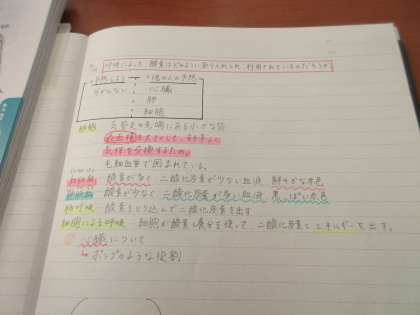 呼吸によって、酸素はどのように取り入れられ、利用されているのだろうか
予想しよう
他の人の予想
分からない
心臓
肺
細胞
肺胞 - 気管支の先端にある小さな袋
表面積を大きくし、効率よく
気体を交換するため
毛細血管で囲まれている。
動脈血 - 酸素が多く 二酸化炭素が少ない血液 鮮やかな赤色
静脈血 - 酸素が少なく、二酸化炭素が多い血液 黒っぽい赤色
肺呼吸 - 酸素をとり込んで二酸化炭素を出す
細胞による呼吸 - 細胞が酸素と養分を使って、二酸化炭素とエネルギーを出す。
心臓について
↳ ポンプのような役割